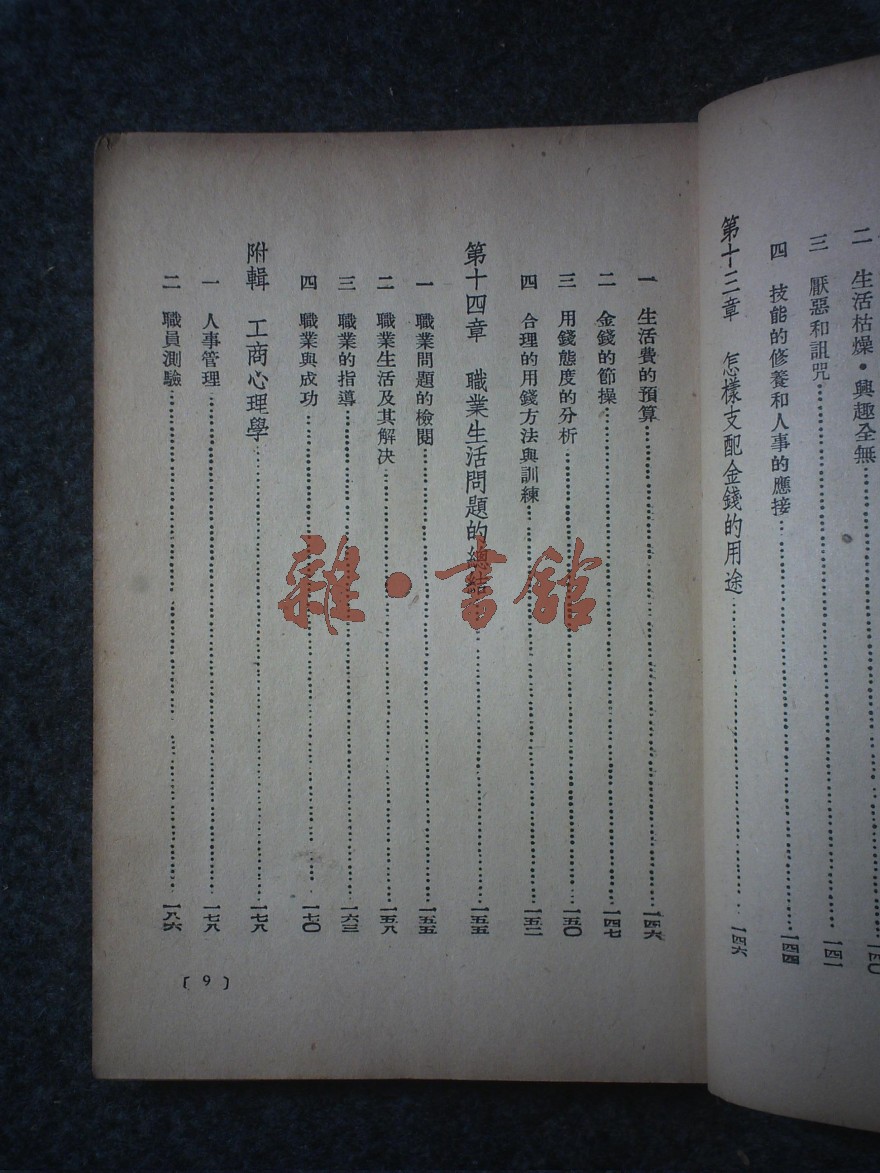 二 生活枯燥・興趣全無 一四〇
三 厭惡和詛咒 一四一
四 技能的修養和人事的應接 一四四
第十三章 怎樣支配金錢的用途 一四六
一 生活費的預算 一四六
二 金錢的節操 一四七
三 用錢態度的分析 一五〇
四 合理的用錢方法與訓練 一五二
第十四章 職業生活問題的總結 一五五
一 職業問題的檢閱 一五五
二 職業生活及其解決 一五八
三 職業的指導 一六三
四 職業與成功 一七〇
附輯 工商心理學 一七八
一 人事管理 一七八
二 職員測驗 一八六
〔9〕
雜・書館